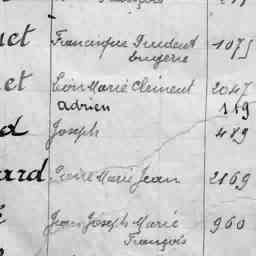 uet Francisque Prudent 1075
Eugène
et Léon Marie Clément 2047
adrien 119
d Joseph 489
ard Pierre Marie Jean 2169
Jean Joseph Marie 960
François